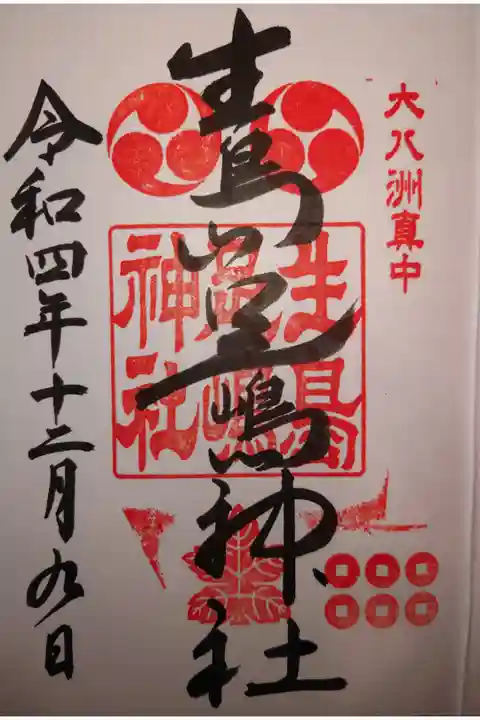 大八洲真中
生島足嶋神社
生島足嶋神社
令和四年十二月九日